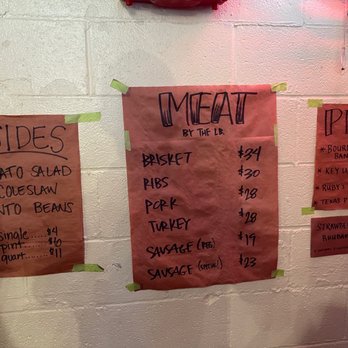 SIDES
ATO SALAD
COLESLAW
NTO BEANS
single.....$4
pint....$6
quart....$11
MEAT
BY THE LB.
BRISKET $34
RIBS $30
PORK $28
TURKEY $28
SAUSAGE (REG) $19
SAUSAGE (SPECIAL) $23
PI
* BOUR
BAN
* KEY LI
* RUBY'S
* TEXAS P
STRAWBE
RHUBAR